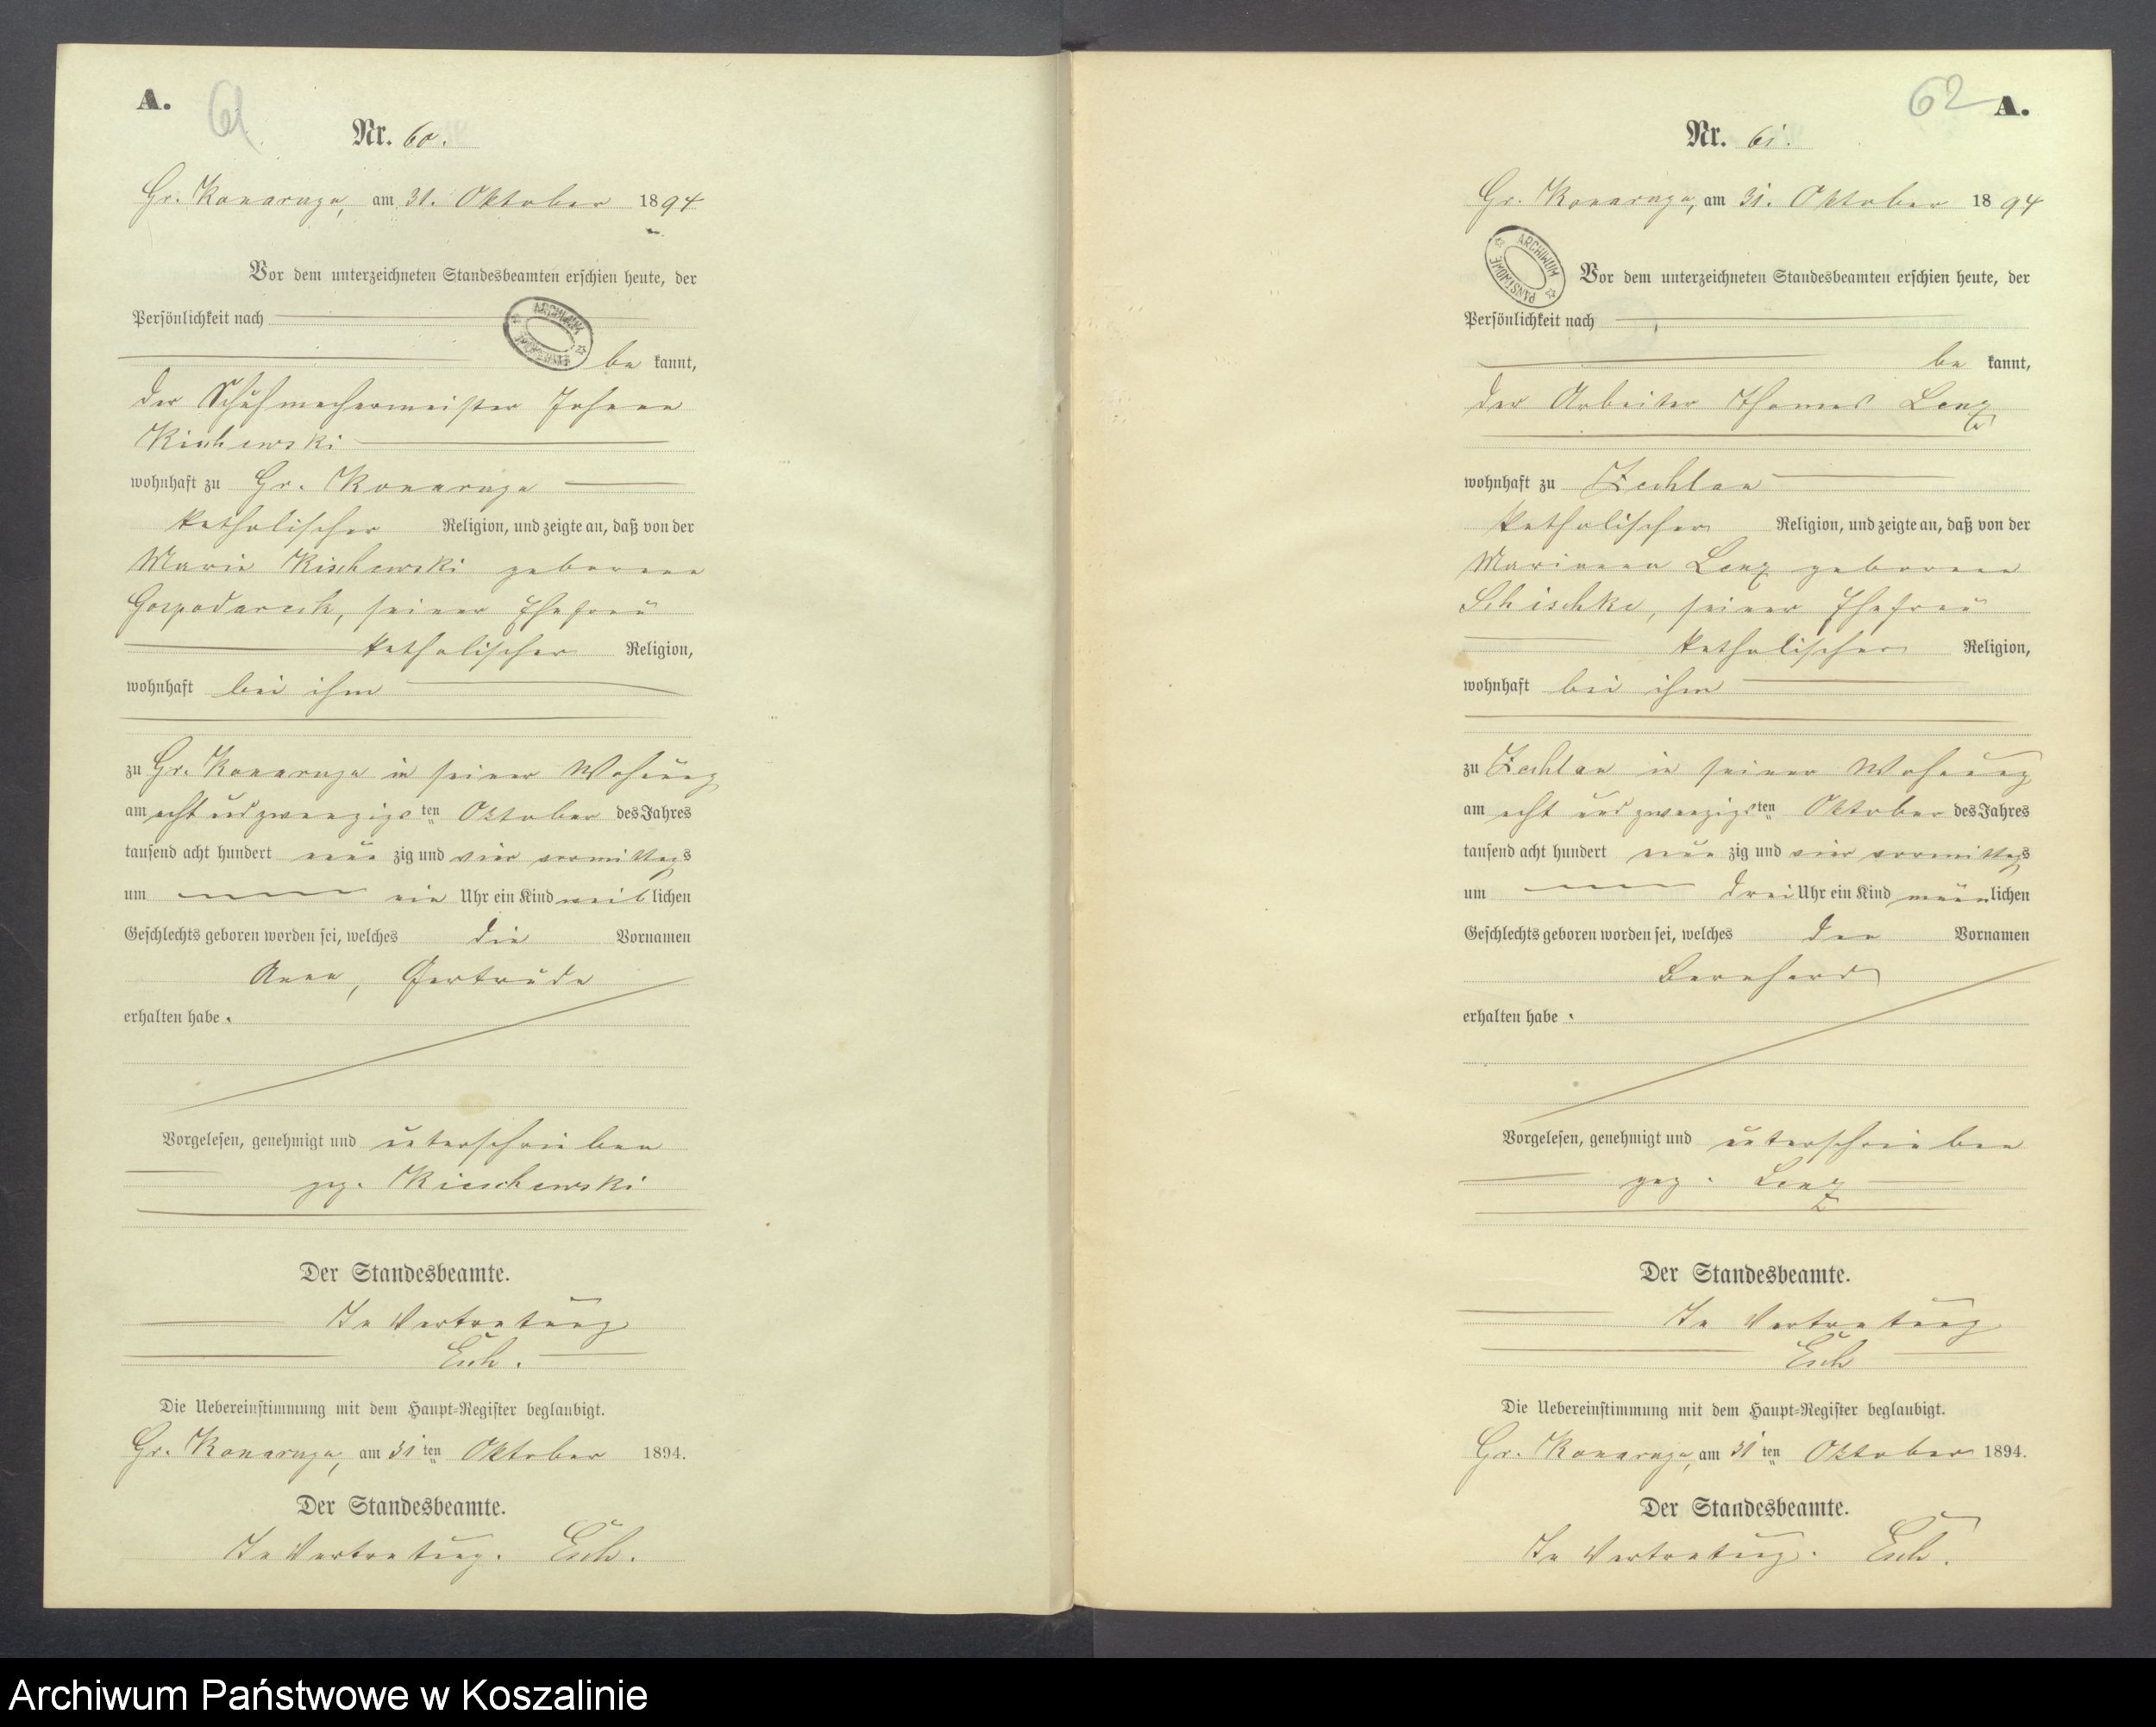 A.
61
Nr. 60.
Gr. Konarczyn, am 31. Oktober 1894
Vor dem unterzeichneten Standesbeamten erschien heute, der
Persönlichkeit nach
ARCHIWUM PAŃSTWOWE
be kannt,
der Schuhmachermeister Johann
wohnhaft zu Gr. Konarczyn
katholischer Religion, und zeigte an, daß von der
Marie Kischewski geborene
seiner Ehefrau
katholischer Religion,
wohnhaft bei ihm
zu Gr. Konarczyn in seiner Wohnung
am acht und zwanzigsten Oktober des Jahres
tausend acht hundert neun zig und vier vormittags
um ein Uhr ein Kind weib lichen
Geschlechts geboren worden sei, welches die Vornamen
Anna, Gertrude
erhalten habe.
Vorgelesen, genehmigt und unterschrieben
gez. Kischewski
Der Standesbeamte.
In Vertretung
Esch.
Die Uebereinstimmung mit dem Haupt-Register beglaubigt.
Gr. Konarczyn, am 31 ten Oktober 1894.
Der Standesbeamte.
In Vertretung. Esch.
62 A.
Nr. 61.
Gr. Konarczyn, am 31. Oktober 1894
ARCHIWUM PAŃSTWOWE
Vor dem unterzeichneten Standesbeamten erschien heute, der
Persönlichkeit nach
be kannt,
der Arbeiter Thomas Lenz
wohnhaft zu Zechlau
katholischer Religion, und zeigte an, daß von der
Marianna Lenz geborene
Schischke, seiner Ehefrau
katholischer Religion,
wohnhaft bei ihm
zu Zechlau in seiner Wohnung
am acht und zwanzigsten Oktober des Jahres
tausend acht hundert neun zig und vier vormittags
um drei Uhr ein Kind männlichen
Geschlechts geboren worden sei, welches den Vornamen
Bernhard
erhalten habe.
Vorgelesen, genehmigt und unterschrieben
gez. Lenz
Der Standesbeamte.
In Vertretung
Esch
Die Uebereinstimmung mit dem Haupt-Register beglaubigt.
Gr. Konarczyn, am 31 ten Oktober 1894.
Der Standesbeamte.
In Vertretung. Esch.
Archiwum Państwowe w Koszalinie